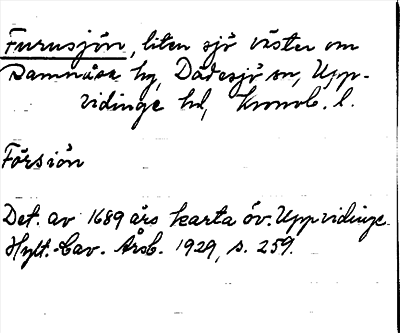 Furusjön, liten sjö väster om
Ramnåsa by, Dädesjö sn, Upp-
vidinge hd, Kronob. l.
Försiön
Det. av 1689 års karta öv. Uppvidinge.
Hylt.-Cav. Årsb. 1929, s. 259.